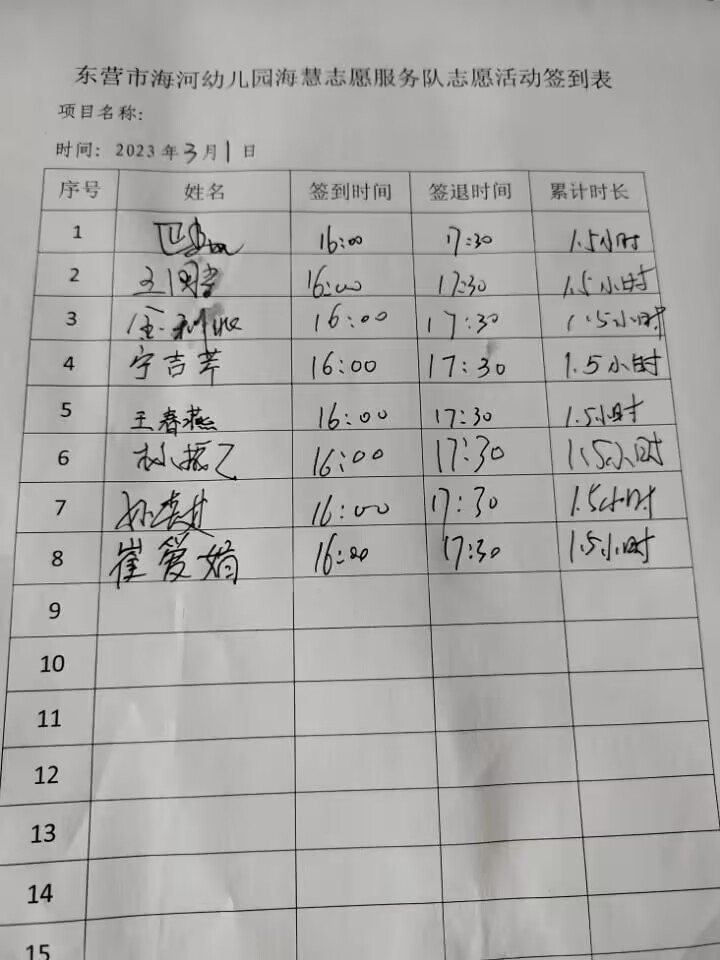 东营市海河幼儿园海慧志愿服务队志愿活动签到表
项目名称:
时间: 2023 年 3 月 1 日
序号 姓名 签到时间 签退时间 累计时长
1 16:00 17:30 1.5小时
2 16:00 17:30 1.5小时
3 16:00 17:30 1.5小时
4 宁吉芹 16:00 17:30 1.5小时
5 王春燕 16:00 17:30 1.5小时
6 16:00 17:30 1.5小时
7 16:00 17:30 1.5小时
8 崔爱娟 16:00 17:30 1.5小时
9
10
11
12
13
14
15